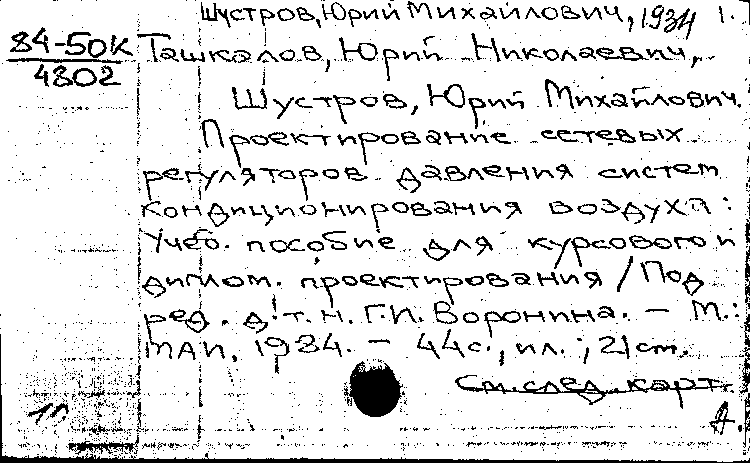 Шустров, Юрий Михайлович, 1934 1.
84-50К
4802
Ташкалов, Юрий Николаевич,
Шустров, Юрий Михайлович.
Проектирование сетевых
регуляторов давления систем
кондиционирования воздуха:
Учеб. пособие для курсового и
диплом. проектирования / Под
ред. д. т. н. Г.И. Воронина. — М.:
МАИ, 1984. — 44 с., ил.; 21 см.
См. след. карт.
Д.